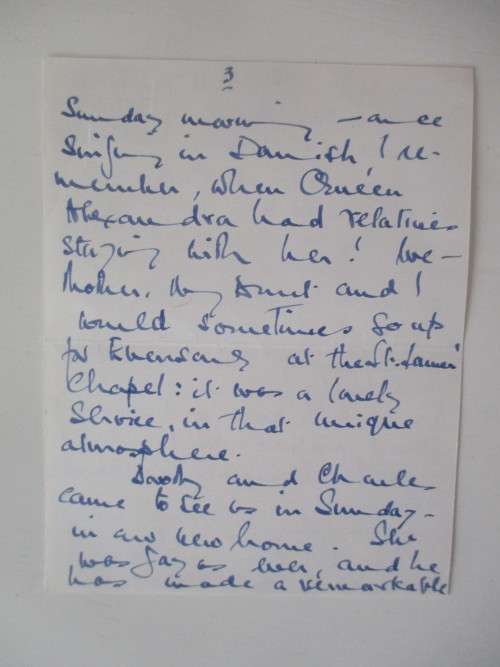 3
Sunday morning – once
Singing in Danish, I re-
member, when Queen
Alexandra had relatives
staying with her! We –
Mother, my Aunt and I
would sometimes go up
for Evensong at the St. James'
Chapel: it was a lovely
Service, in that unique
atmosphere.
Dorothy and Charles
came to see us in Sunday –
in our new home. She
was gay as ever, and he
has made a remarkable